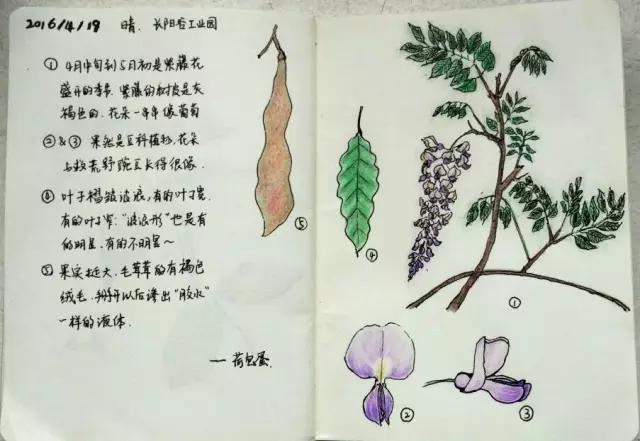 2016/4/19 晴. 长阳谷工业园
① 4月中旬到5月初是紫藤花
盛开的季节. 紫藤的树皮是灰
褐色的. 花朵一串串像葡萄
②&③ 果然是豆科植物, 花朵
与救荒野豌豆长得很像.
④ 叶子褶皱波浪, 有的叶子宽
有的叶子窄: "波浪形"也是有
的明显, 有的不明显~
⑤ 果实挺大, 毛茸茸的有褐色
绒毛. 掰开以后渗出"胶水"
一样的液体.
—荷包蛋.
⑤
④
①
②
③